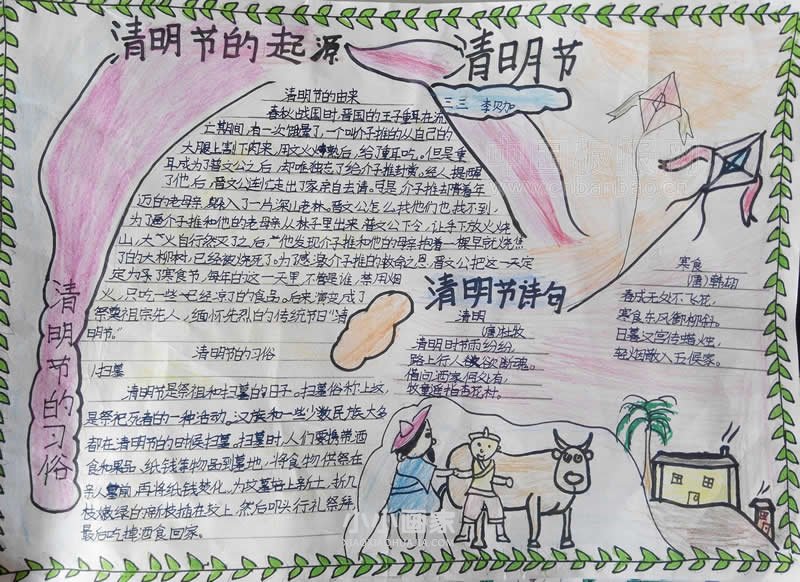 清明节的起源
清明节
三三 李贝加
清明节的由来
春秋战国时,晋国的王子重耳在流
亡期间,有一次饿晕了,一个叫介子推的从自己的
大腿上割下肉来,用文火烤熟后,给了重耳吃。但是重
耳成为了晋文公之后,却唯独忘了给介子推封赏,经人提醒
了他后,晋文公连忙走出了家亲自去请。可是介子推却背着年
迈的老母亲,躲入了一片深山老林。晋文公怎么找他们也找不到,
为了逼介子推和他的老母亲从林子里出来。晋文公下令,让手下放火烧
山,大火自行熄灭了之后,他发现介子推和他的母亲抱着一棵早就烧焦
了的大柳树,已经被烧死了。为了感激介子推的救命之恩,晋文公把这一天定
定为了寒食节,每年的这一天里,不管是谁,禁用烟
火,只吃一些已经凉了的食品。后来演变成了
祭奠祖宗先人,缅怀先烈的传统节日"清
明节。"
清明节的习俗
清明节的习俗
1.扫墓
清明节是祭祖和扫墓的日子。扫墓俗称上坟,
是祭祀死者的一种活动。汉族和一些少数民族大多
都在清明节的时候扫墓。扫墓时,人们要携带酒
食和果品、纸钱等物品到墓地,将食物供祭在
亲人墓前,再将纸钱焚化,为坟墓培上新土,折几
枝嫩绿的新枝插在坟上,然后叩头行礼祭拜,
最后吃掉酒食回家。
清明节诗句
清明
唐 杜牧
清明时节雨纷纷,
路上行人欲断魂。
借问酒家何处有,
牧童遥指杏花村。
寒食
(唐)韩翃
春城无处不飞花,
寒食东风御柳斜。
日暮汉宫传蜡烛,
轻烟散入五侯家。
www.chbanbao.cn
小小画家
XIAOXIAOHUAJIA.COM